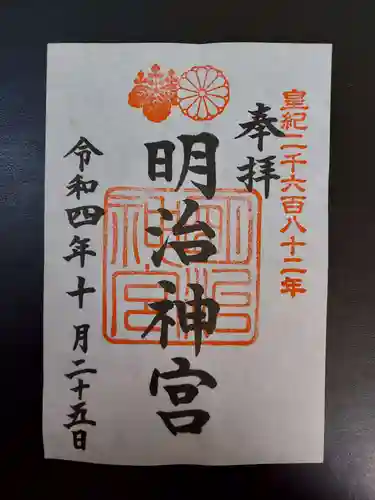 皇紀二千六百八十二年
奉拝
明治神宮
明治神宮
令和四年十月二十五日